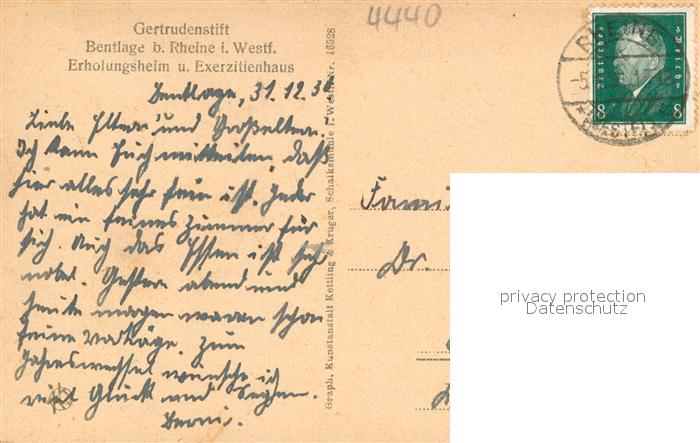 4440
Gertrudenstift
Bentlage b. Rheine i. Westf.
Erholungsheim u. Exerzitienhaus
Bentlage, 31.12.30
Liebe Eltern und Großeltern.
Ich kann Euch mitteilen, daß
hier alles sehr fein ist. Jeder
hat ein feines Zimmer für
sich. Auch das Essen ist sehr
nobel. Gestern abend und
heute morgen waren schon
feine Vorträge. Zum
Jahreswechsel wünsche ich
viel Glück und Segen.
Berni.
Graph. Kunstanstalt Kettling & Krüger, Schalksmühle i. Westf. Nr. 16528
Deutsches Reich
8 8
RHEINE
Dr.
privacy protection
Datenschutz